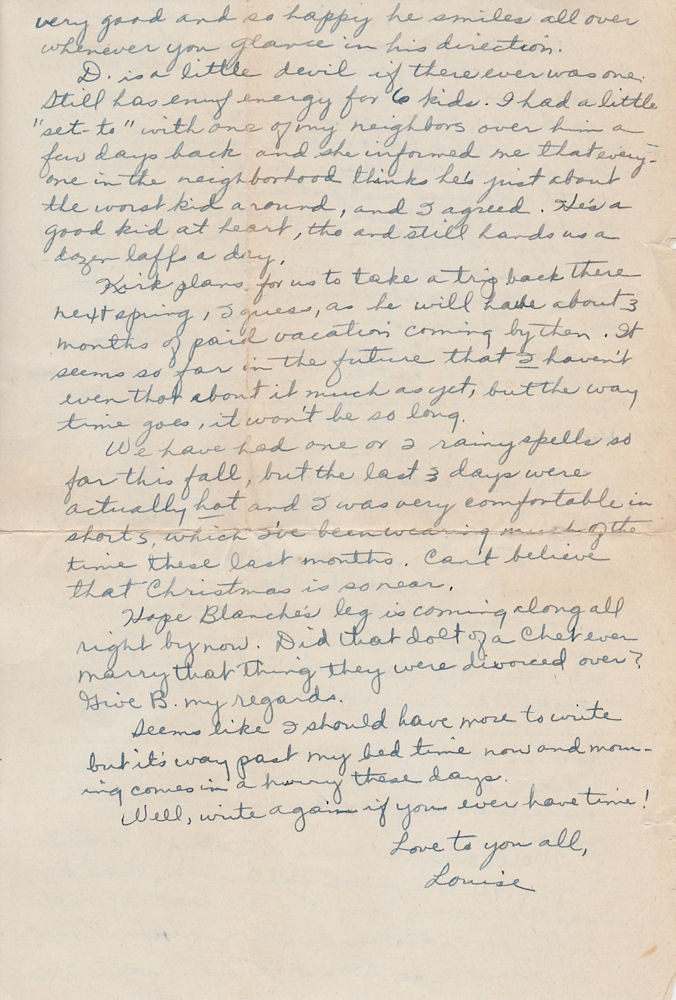 very good and so happy he smiles all over
whenever you glance in his direction.
D. is a little devil if there ever was one.
Still has enuf energy for 6 kids. I had a little
"set-to" with one of my neighbors over him a
few days back and she informed me that every-
one in the neighborhood thinks he's just about
the worst kid around, and I agreed. He's a
good kid at heart, tho and still hands us a
dozen laffs a day.
Kirk plans for us to take a trip back there
next spring, I guess, as he will have about 3
months of paid vacation coming by then. It
seems so far in the future that I haven't
even thot about it much as yet, but the way
time goes, it won't be so long.
We have had one or 2 rainy spells so
far this fall, but the last 3 days were
actually hot and I was very comfortable in
shorts, which I've been wearing much of the
time these last months. Can't believe
that Christmas is so near.
Hope Blanche's leg is coming along all
right by now. Did that dolt of a Chet ever
marry that thing they were divorced over?
Give B. my regards.
Seems like I should have more to write
but it's way past my bed time now and morn-
ing comes in a hurry these days.
Well, write again if you ever have time!
Love to you all,
Louise